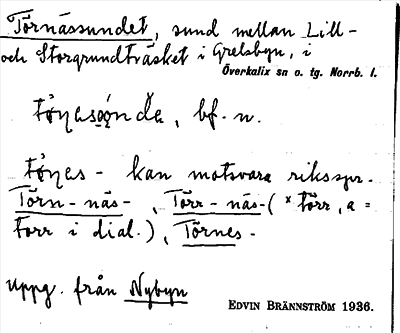 Törnässundet, sund mellan Lill-
och Storgrundträsket i Grelsbyn, i
Överkalix sn o. tg. Norrb. l.
bf. n.
- kan motsvara riksspr.
Törn-näs-, Törr-näs- (* törr, a =
torr i dial.), Törnes-
Uppg. från Nybyn
EDVIN BRÄNNSTRÖM 1936.